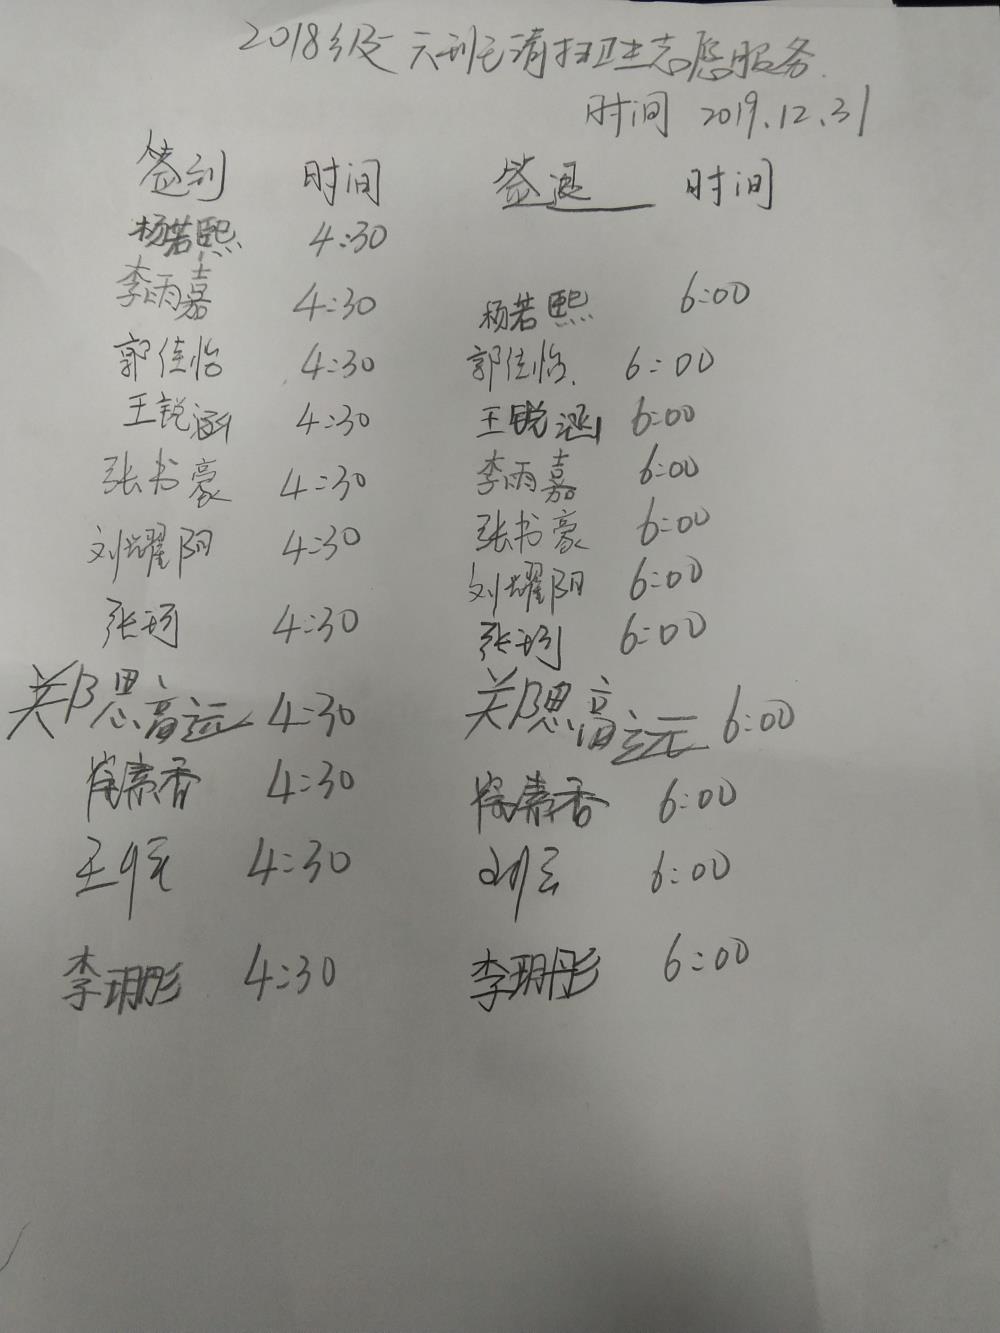 2018级六班清扫卫生志愿服务.
时间 2019.12.31
签到 时间 签退 时间
杨若熙 4:30
李雨嘉 4:30 杨若熙 6:00
郭佳怡 4:30 郭佳怡. 6:00
王锐涵 4:30 王锐涵 6:00
张书豪 4:30 李雨嘉 6:00
刘耀阳 4:30 张书豪 6:00
张珂 4:30 刘耀阳 6:00
张珂 6:00
关郎思高远 4:30 关郎思高远 6:00
素香 4:30 素香 6:00
4:30 6:00
李玥彤 4:30 李玥彤 6:00